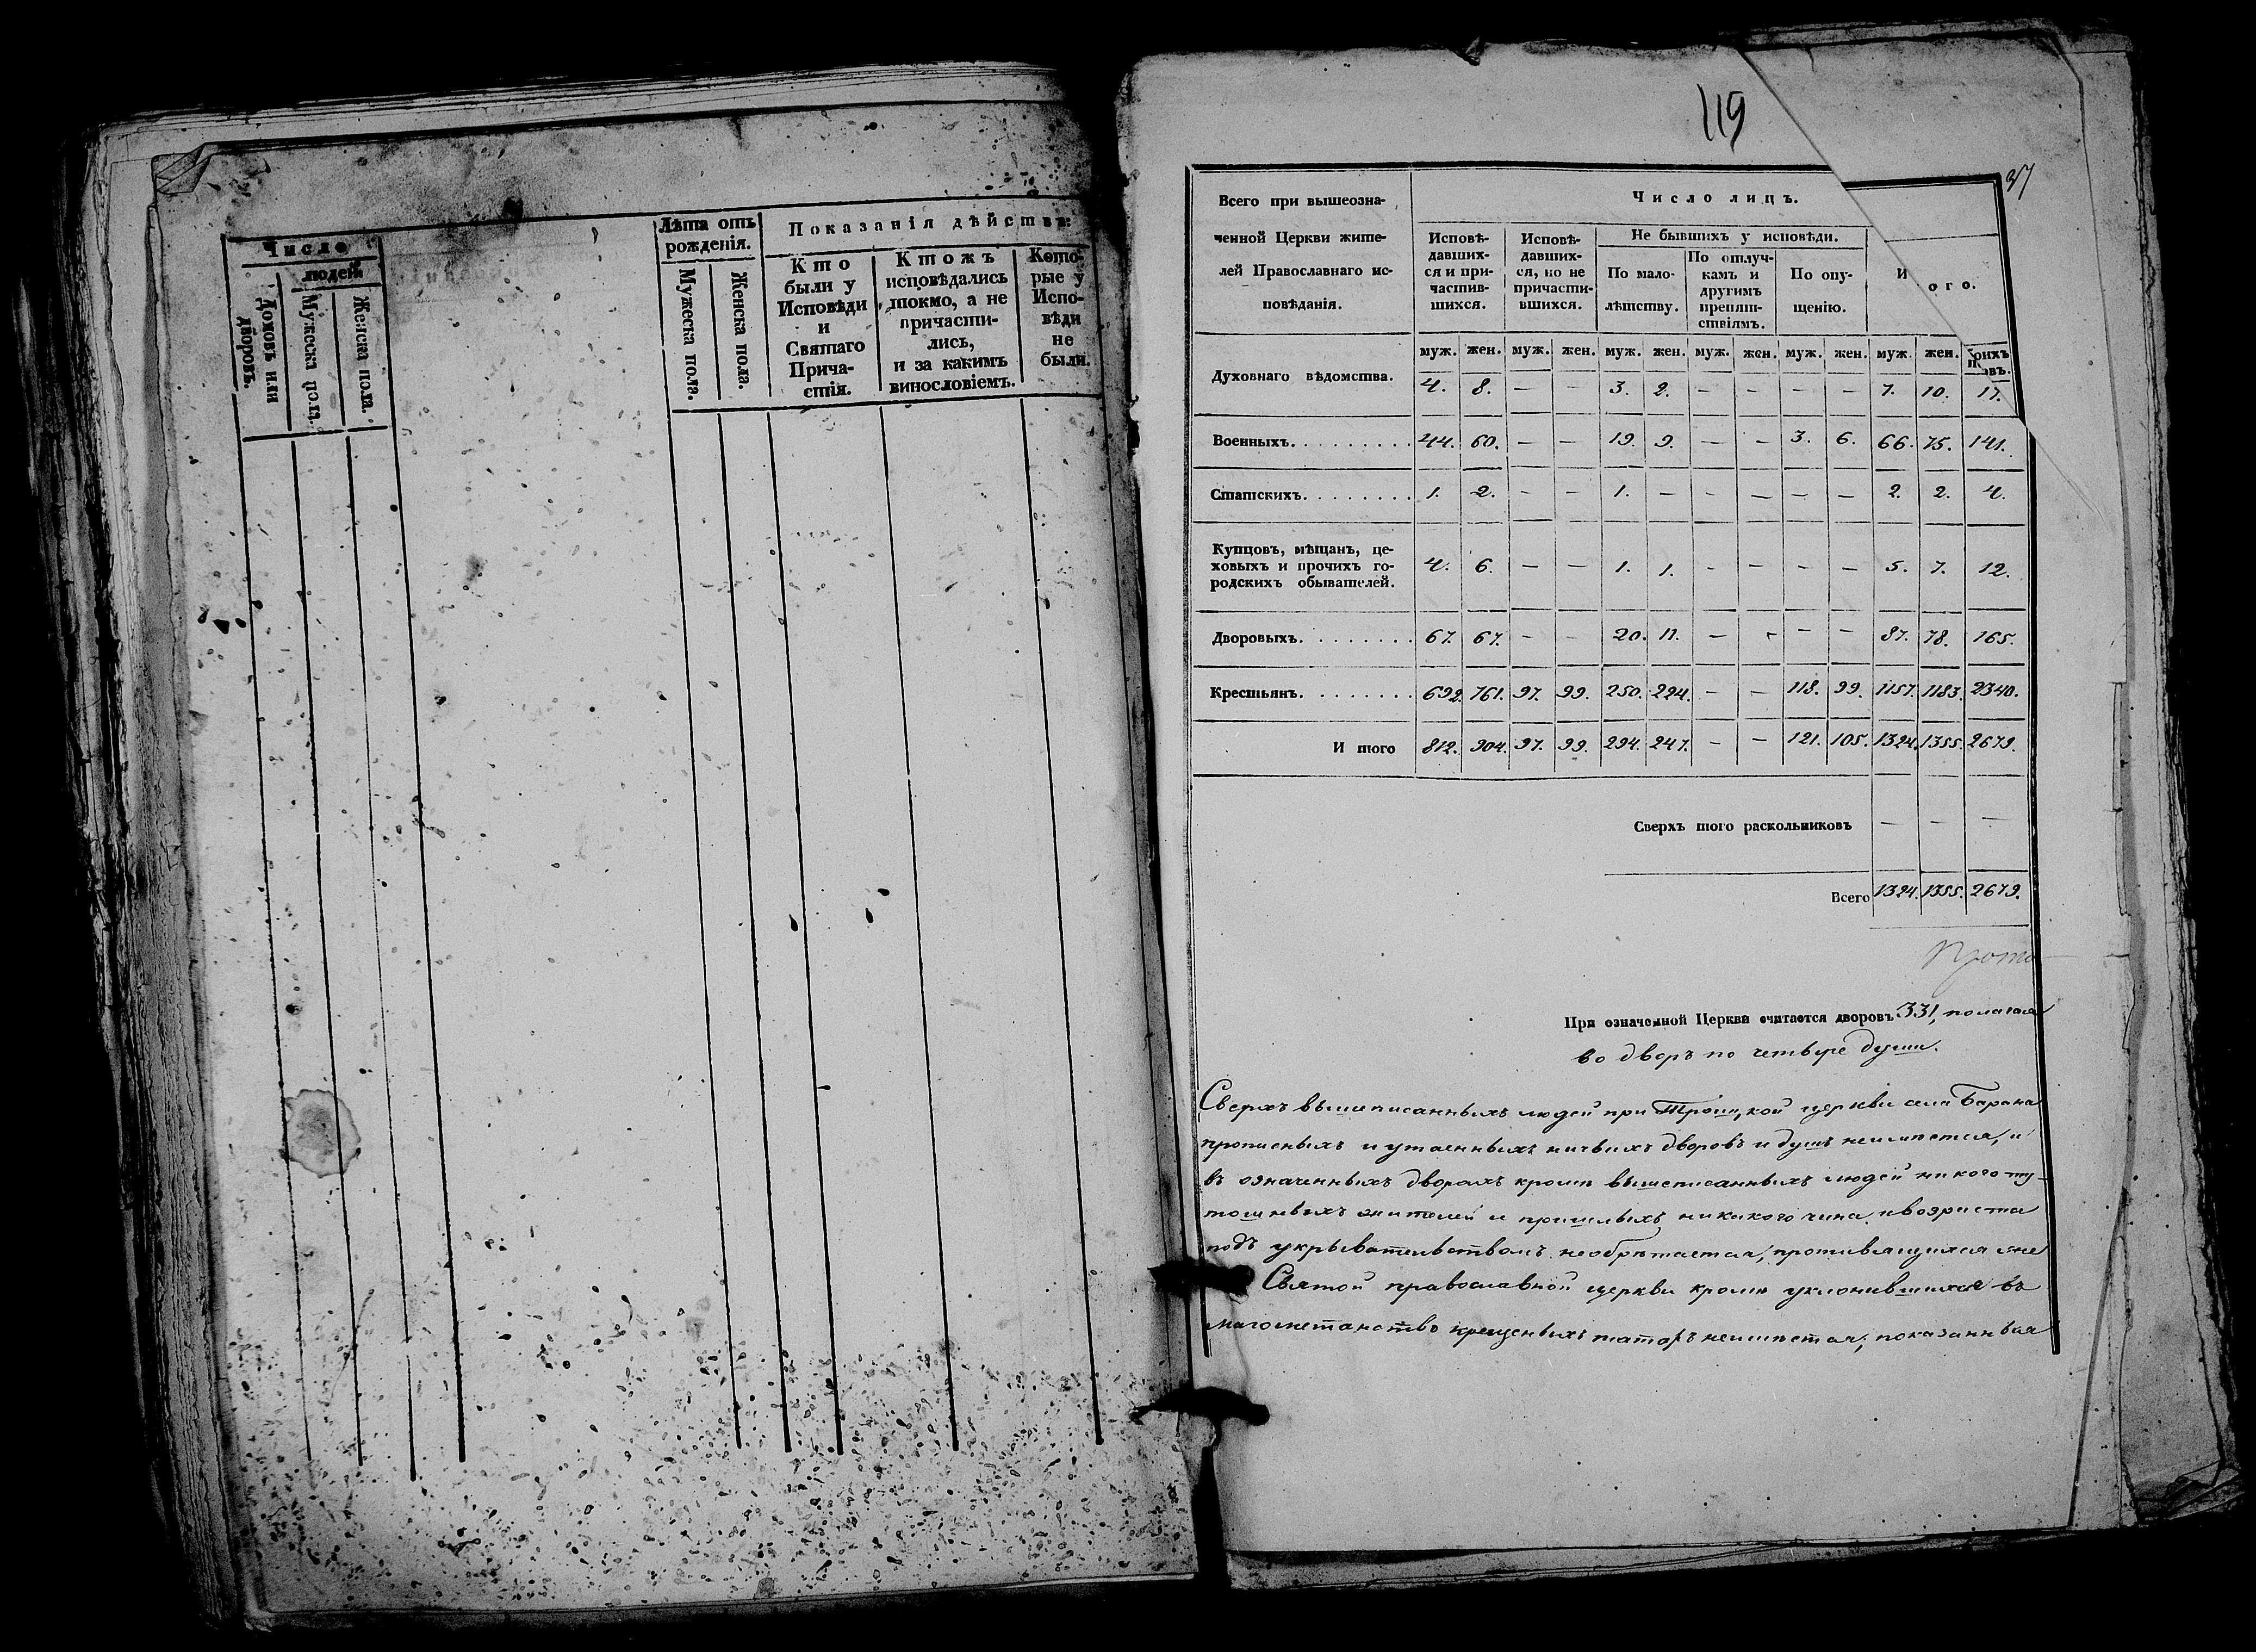 Число
людей
Домовъ или дворовъ.
Мужеска пола.
Женска пола.
Лѣта отъ рожденія.
Мужеска пола.
Женска пола.
Показанія дѣйства:
Кто были у Исповѣди и Святаго Причастія.
Ктожъ исповѣдались токмо, а не причастились, и за какимъ винословіемъ.
Которые у Исповѣди не были.
119
37
Всего при вышеозна-
ченной Церкви жите-
лей Православнаго ис-
повѣданія.
Число лицъ.
Исповѣ-
давших-
ся и при-
частив-
шихся.
Исповѣ-
давших-
ся, но не
причасти-
вшихся.
Не бывшихъ у исповѣди.
По мало-
лѣтству.
По отлуч-
камъ и
другимъ
препят-
ствіямъ.
По опу-
щенію.
И ого.
муж. жен. муж. жен. муж. жен. муж. жен. муж. жен. муж. жен. боихъ
овъ.
Духовнаго вѣдомства. 4. 8. — — 3. 2. — — — — 7. 10. 17.
Военныхъ. 44. 60. — — 19. 9. — — 3. 6. 66. 75. 141.
Статскихъ. 1. 2. — — 1. — — — — — 2. 2. 4.
Купцовъ, мѣщанъ, це-
ховыхъ и прочихъ го-
родскихъ обывателей. 4. 6. — — 1. 1. — — — — 5. 7. 12.
Дворовыхъ. 67. 67. — — 20. 11. — — — — 87. 78. 165.
Крестьянъ. 692. 761. 97. 99. 250. 224. — — 118. 99. 1157. 1183. 2340.
И того 812. 904. 97. 99. 294. 247. — — 121. 105. 1324. 1355. 2679.
Сверхъ того раскольниковъ — — —
Всего 1324. 1355. 2679.
Прото
При означенной Церкви считается дворовъ 331, полагая
во дворъ по четыре души.
Сверхъ вышеписанныхъ людей при Троицкой церкви села Барана
прописныхъ и утаенныхъ ничьихъ дворовъ и душъ неимѣется, и
въ означенныхъ дворахъ кромѣ вышеписанныхъ людей никого ту-
тошныхъ жителей и пришлыхъ никакого чина и возраста
подъ укрывательствомъ необрѣтается, противящихся же
Святой православной церкви кромѣ уклонившихся въ
магометанство крещеныхъ татаръ неимѣется, показанныя